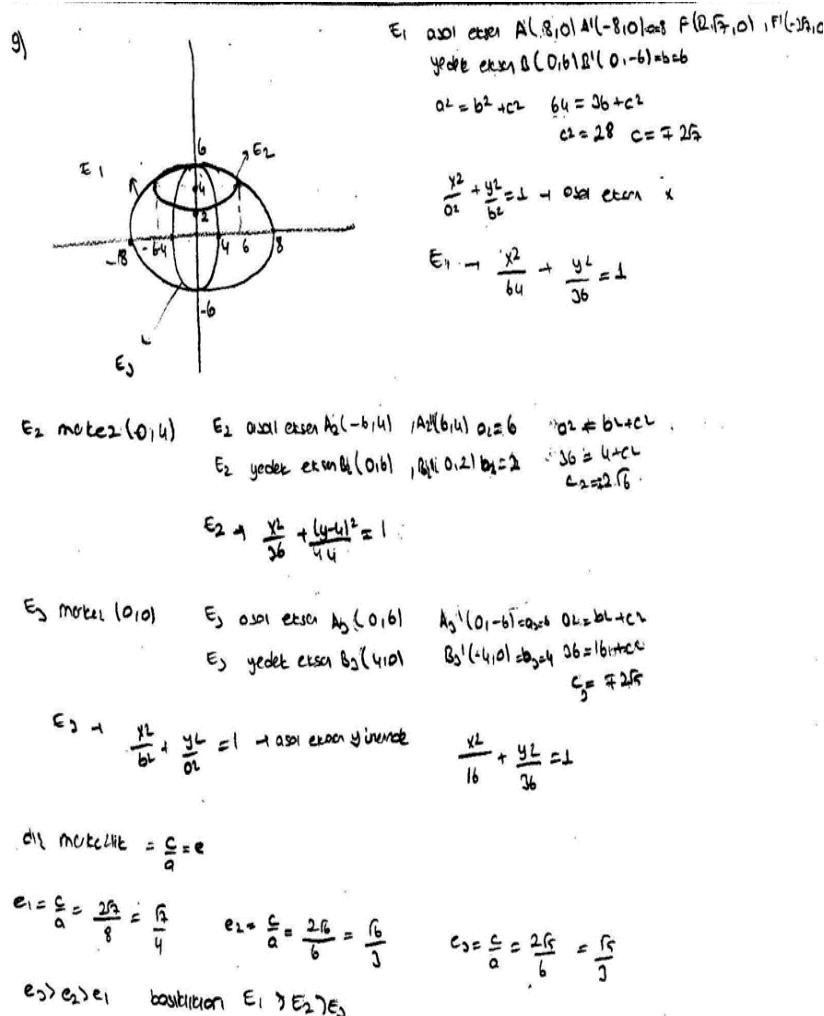 9)
E1 asal eksen A(8,0) A'(-8,0) a=8 F(2√7,0), F'(-2√7,0
yedek eksen B(0,6) B'(0,-6) = b=6
a² = b² + c² 64 = 36 + c²
c² = 28 c = ∓ 2√7
x²/a² + y²/b² = 1 → asal eksen x
E1 → x²/64 + y²/36 = 1
E1 6 E2
4
2
-8 -6 -4 4 6 8
-6
E3
E2 merkez (0,4) E2 asal eksen A2(-6,4), A2'(6,4) a2=6 a² = b²+c²
E2 yedek eksen B2(0,6), B2'(0,2) b2=2 36 = 4+c²
E2 → x²/36 + (y-4)²/4 = 1
E3 merkez (0,0) E3 asal eksen A3(0,6) A3'(0,-6)=a3=6 a²=b²+c²
E3 yedek eksen B3(4,0) B3'(-4,0)=b3=4 36=16+c²
c3 = ∓2√5
E3 → x²/b² + y²/a² = 1 → asal eksen y x²/16 + y²/36 = 1
dış merkezlik = c/a = e
e1 = c/a = 2√7/8 = √7/4 e2 = c/a = 2√6/6 = √6/3 e3 = c/a = 2√5/6 = √5/3
e3 > e2 > e1 E1 > E2 > E3